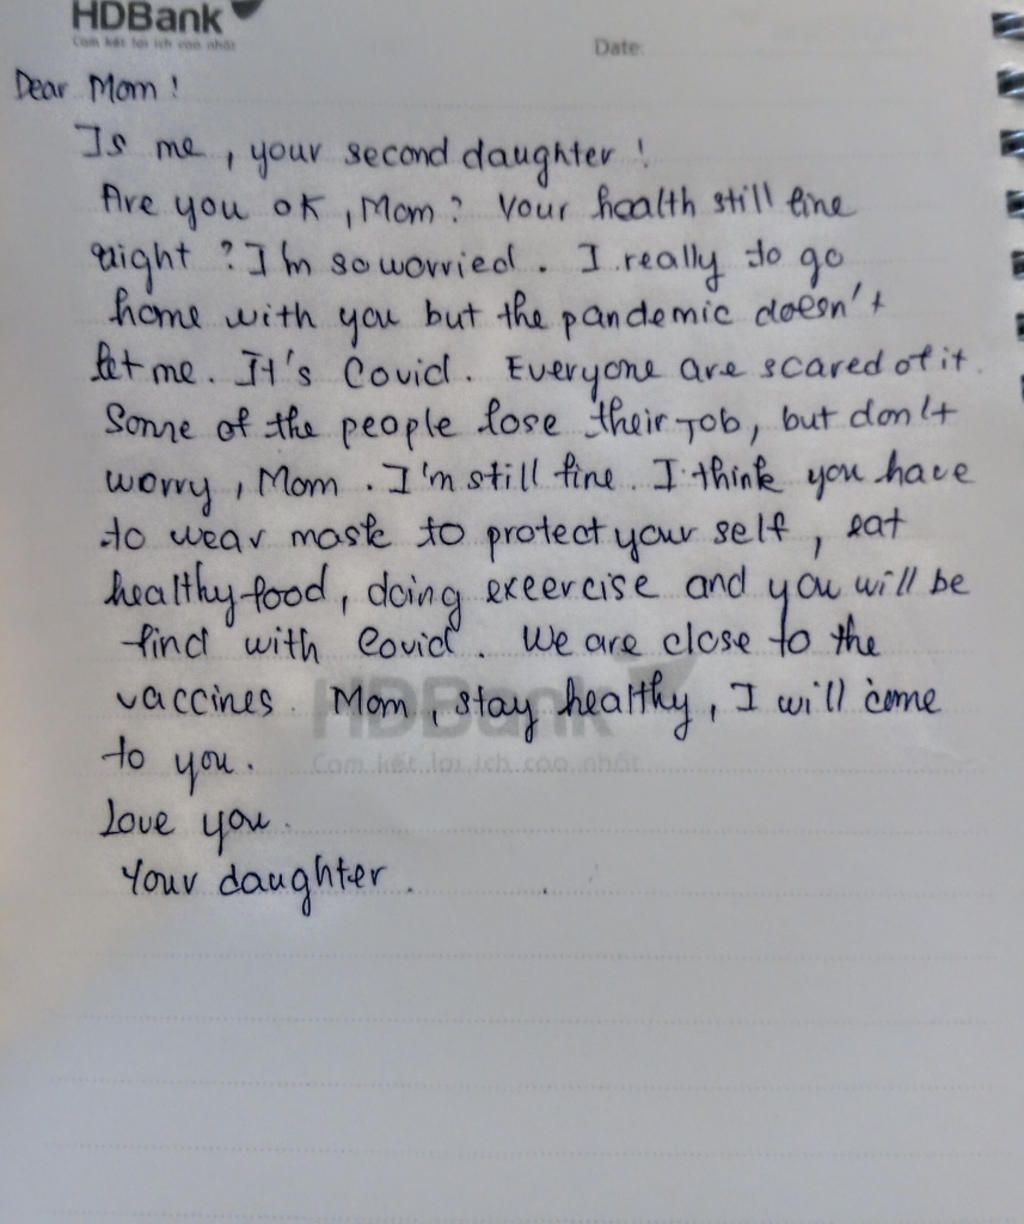 HDBank
Cam kết lợi ích cao nhất
Date:
Dear Mom !
Is me, your second daughter !
Are you ok, Mom ? Your health still fine
right ? I'm so worried. I really to go
home with you but the pandemic doesn't
let me. It's Covid. Everyone are scared of it.
Some of the people lose their Job, but don't
worry, Mom. I'm still fine. I think you have
to wear mask to protect your self, eat
healthy food, doing exeercise and you will be
find with Covid. We are close to the
vaccines. Mom, stay healthy, I will come
to you.
Love you.
Your daughter.
HDBank
Cam kết lợi ích cao nhất